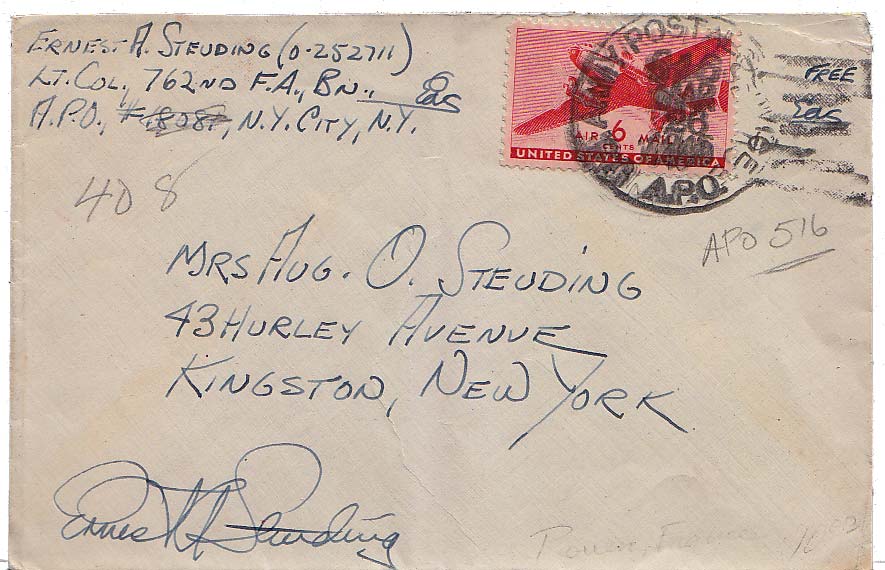 ERNEST A. STEUDING (O-252711)
LT. COL., 762ND F.A., BN., Eas
A.P.O., #18087, N.Y. CITY, N.Y.
408
AIR 6 MAIL
CENTS
UNITED STATES OF AMERICA
ARMY POSTAL
A.P.O.
FREE
Eas
APO 516
MRS AUG. O. STEUDING
43 HURLEY AVENUE
KINGSTON, NEW YORK
Ernest A. Steuding
Rouen, France